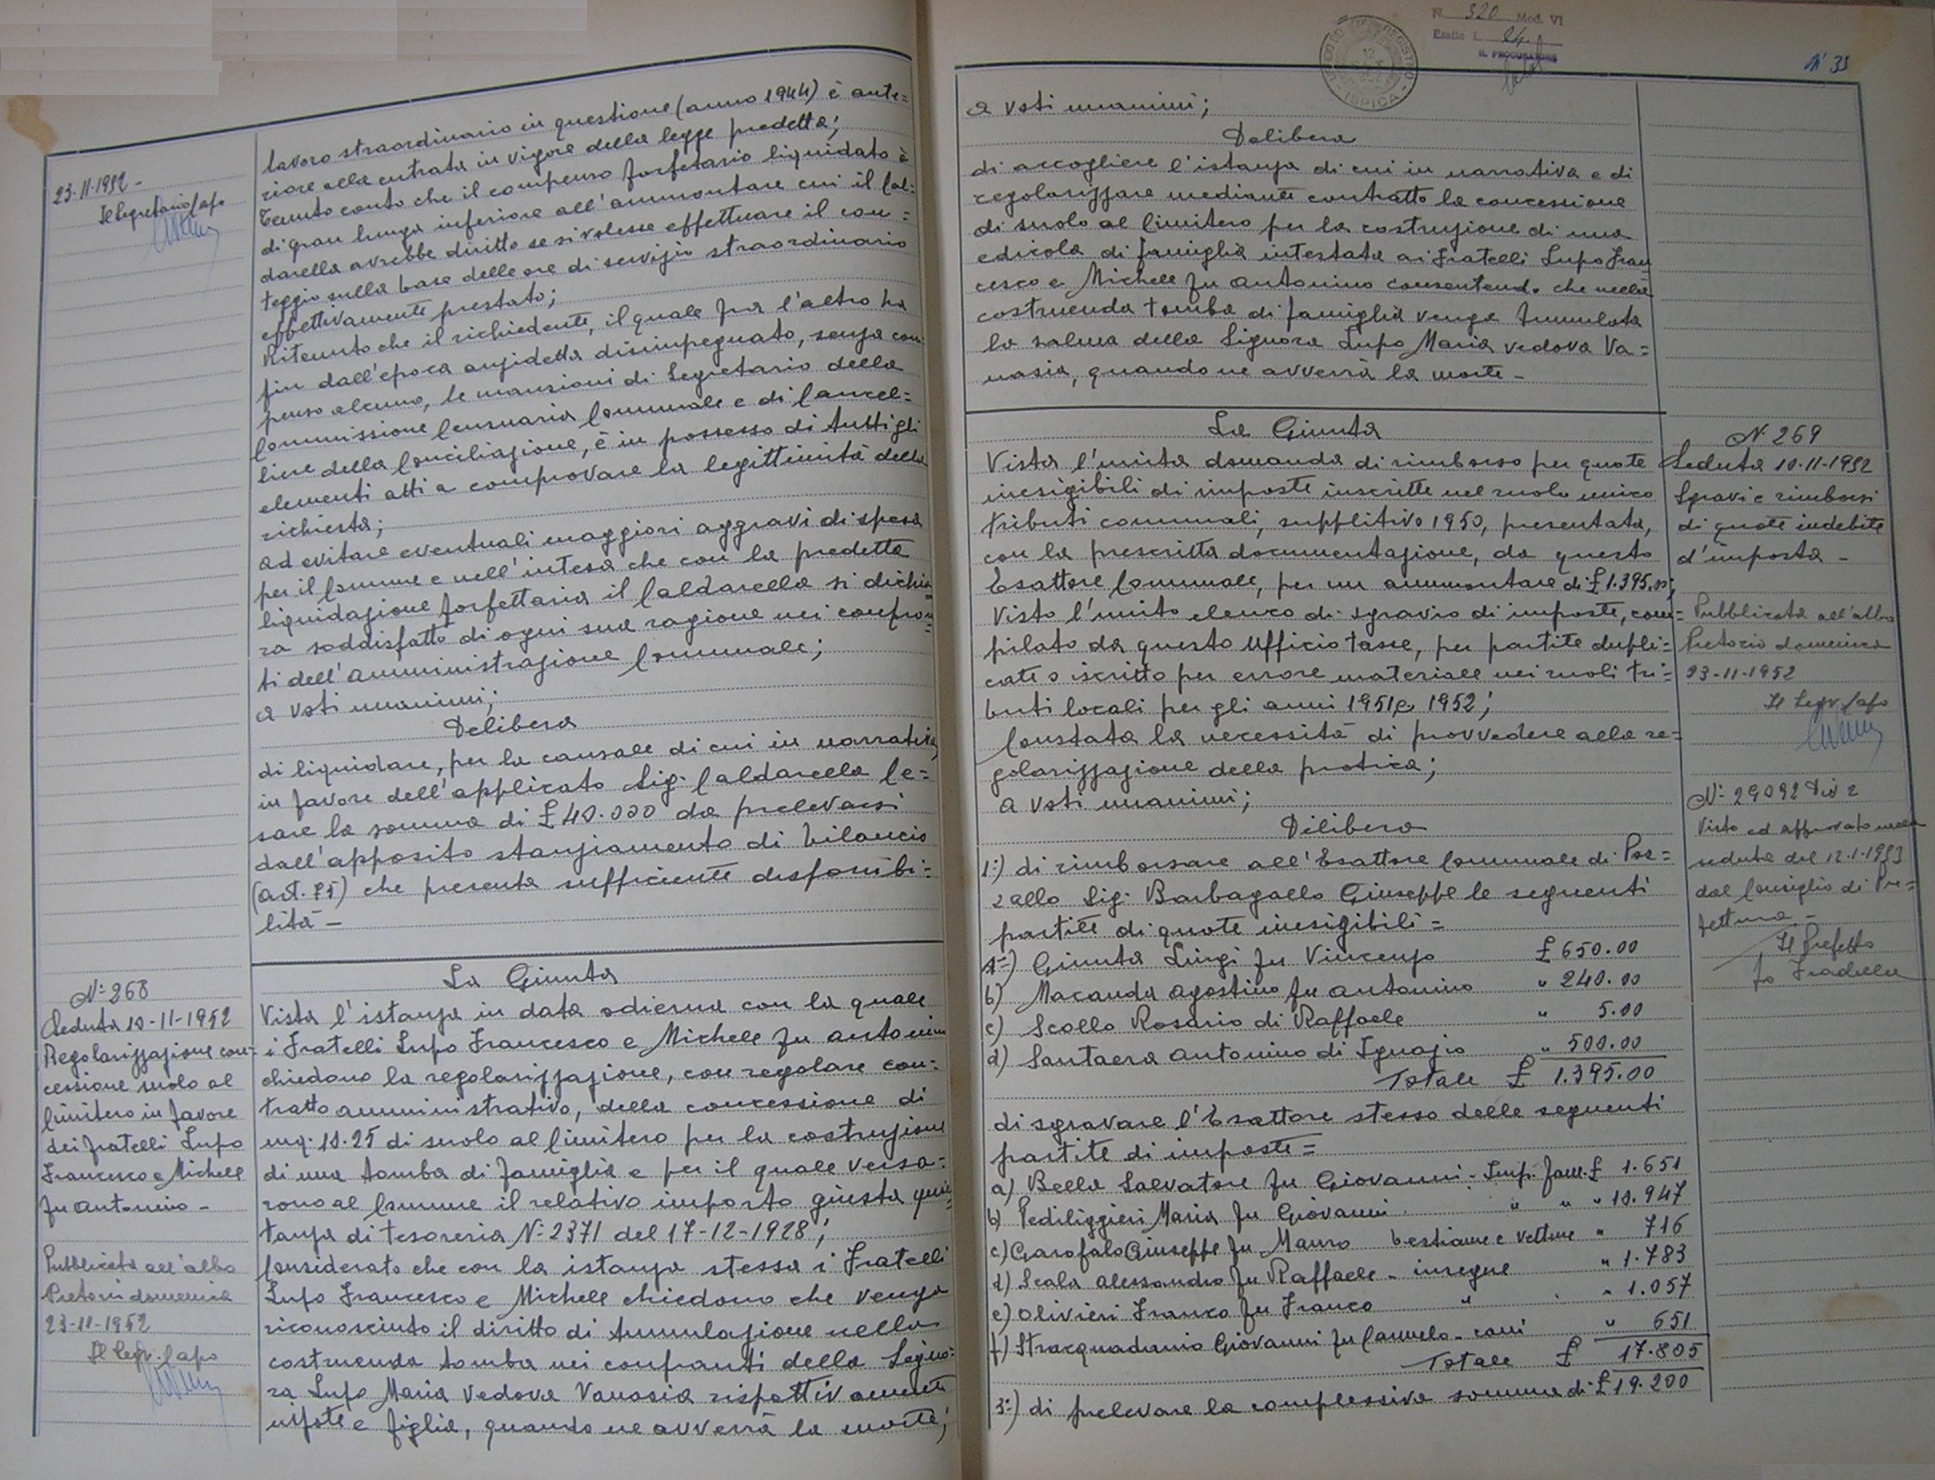 23-11-1952 -
Il Segretario Capo
lavoro straordinario in questione (anno 1944) è ante=
riore alla entrata in vigore della legge predetta;
Tenuto conto che il compenso forfetario liquidato è
di gran lunga inferiore all'ammontare cui il Cal=
darella avrebbe diritto se si volesse effettuare il con=
teggio sulla base delle ore di servizio straordinario
effettivamente prestato;
Ritenuto che il richiedente, il quale fra l'altro ha
fin dall'epoca anzidetta disimpegnato, senza com
penso alcuno, le mansioni di Segretario della
Commissione Censuaria Comunale e di Cancel=
liere della Conciliazione, è in possesso di tutti gli
elementi atti a comprovare la legittimità della
richiesta;
ad evitare eventuali maggiori aggravi di spesa
per il Comune e nell'intesa che con la predetta
liquidazione forfettaria il Caldarella si dichia
ra soddisfatto di ogni sua ragione nei confron=
ti dell'Amministrazione Comunale;
a voti unanimi;
Delibera
di liquidare, per la causale di cui in narrativa,
in favore dell'applicato Sig. Caldarella Ce=
sare la somma di £ 40.000 da prelevarsi
dall'apposito stanziamento di bilancio
(art. 75) che presenta sufficiente disponibi=
lità -
N: 268
Seduta 10-11-1952
Regolarizzazione con=
cessione suolo al
Cimitero in favore
dei fratelli Lupo
Francesco e Michele
fu Antonino -
Pubblicata all'albo
Pretorio domenica
23-11-1952
Il Segr. Capo
La Giunta
Vista l'istanza in data odierna con la quale
i Fratelli Lupo Francesco e Michele fu Antonino
chiedono la regolarizzazione, con regolare con=
tratto amministrativo, della concessione di
mq. 10.25 di suolo al Cimitero per la costruzione
di una tomba di famiglia e per il quale versa=
rono al Comune il relativo importo giusta quie
tanza di tesoreria N: 2371 del 17-12-1928;
Considerato che con la istanza stessa i Fratelli
Lupo Francesco e Michele chiedono che venga
riconosciuto il diritto di tumulazione nella
costruenda tomba nei confronti della Signo=
ra Lupo Maria vedova Vanasia rispettivamente
nipote e figlia, quando ne avverrà la morte;
N 320 Mod. VI
Esatte L. 24.
IL PROCURATORE
ISPICA
N° 33
a voti unanimi;
Delibera
di accogliere l'istanza di cui in narrativa e di
regolarizzare mediante contratto la concessione
di suolo al Cimitero per la costruzione di una
edicola di famiglia intestata ai Fratelli Lupo Fran
cesco e Michele fu Antonino consentendo che nella
costruenda tomba di famiglia venga tumulata
la salma della Signora Lupo Maria vedova Va=
nasia, quando ne avverrà la morte -
La Giunta
Vista l'unita domanda di rimborso per quote
inesigibili di imposte inscritte nel ruolo unico
tributi comunali, suppletivo 1950, presentata,
con la prescritta documentazione, da questo
Esattore Comunale, per un ammontare di £ 1.395.00;
Visto l'unito elenco di sgravio di imposte, com=
pilato da questo Ufficio tasse, per partite dupli=
cate o iscritto per errore materiale nei ruoli tri=
buti locali per gli anni 1951 e 1952;
Constata la necessità di provvedere alla re=
golarizzazione della pratica;
a voti unanimi;
Dilibera
1:) di rimborsare all'Esattore Comunale di Poz=
zallo Sig. Barbagallo Giuseppe le seguenti
partite di quote inesigibili =
a) Giunta Luigi fu Vincenzo £ 650.00
b) Macauda Agostino fu Antonino " 240.00
c) Scollo Rosario di Raffaele " 5.00
d) Santaera Antonino di Ignazio " 500.00
Totale £ 1.395.00
di sgravare l'Esattore stesso delle seguenti
partite di imposte =
a) Bella Salvatore fu Giovanni - Imp. fam. £ 1.651
b) Pediliggieri Maria fu Giovanni " " " 10.947
c) Garofalo Giuseppe fu Mauro bestiame e vetture " 716
d) Scala Alessandro fu Raffaele - insegne " 1.783
e) Olivieri Franco fu Franco " " 1.057
f) Stracquadanio Giovanni fu Carmelo - cani " 651
Totale £ 17.805
3:) di prelevare la complessiva somma di £ 19.200
N 269
Seduta 10-11-1952
Sgravi e rimborsi
di quote indebite
d'imposta -
Pubblicata all'albo
Pretorio domenica
23-11-1952
Il Segr. Capo
N: 29092 Div 2
Visto ed approvato nella
seduta del 12-1-1953
dal Consiglio di Pre=
fettura -
Il Prefetto